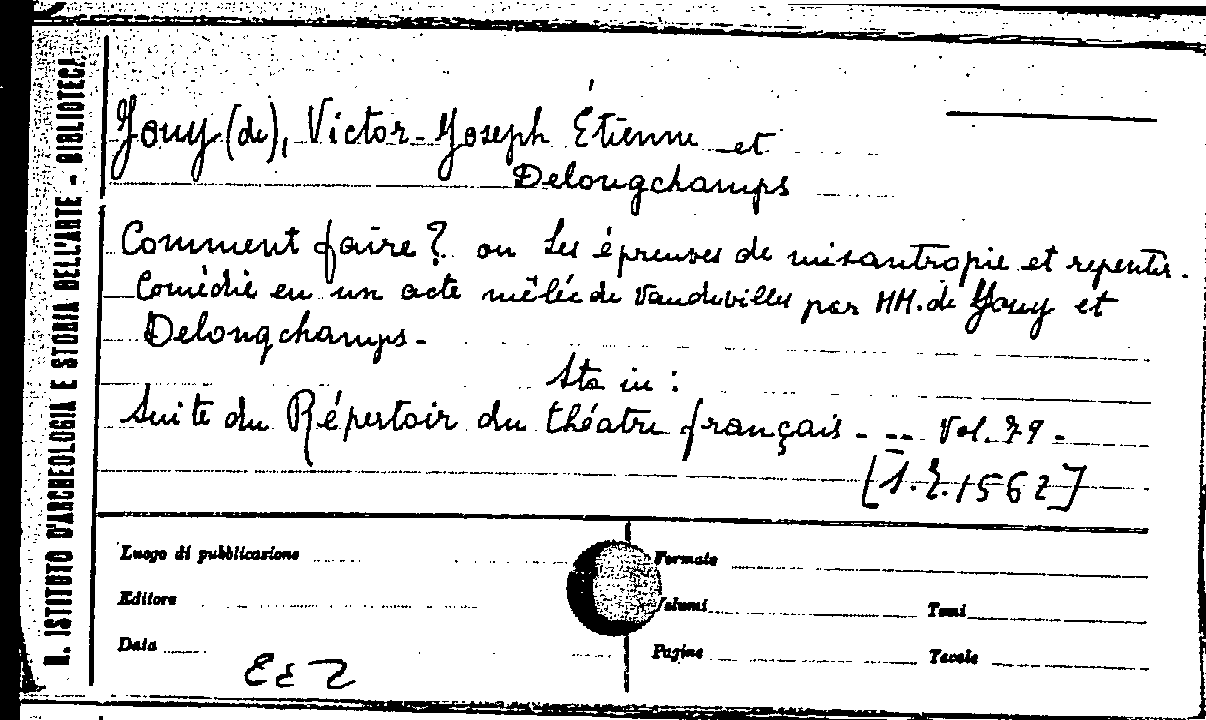 R. ISTITUTO D'ARCHEOLOGIA E STORIA DELL'ARTE - BIBLIOTECA
Jouy (de), Victor-Joseph Étienne et
Delongchamps
Comment faire? ou Les épreuves de misantropie et repentir.
Comédie en un acte mêlée de Vaudevilles par MM. de Jouy et
Delongchamps.
Sta in:
Suite du Répertoir du théatre français - -- Vol. 79-
Luogo di pubblicazione
Formato
Editore
Volumi
Tomi
Data
Pagine
Tavole